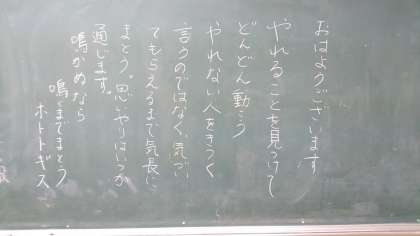 おはようございます
やれることを見つけて
どんどん動こう
やれない人をきつく
言うのではなく、気づい
てもらえるまで気長に
まとう。思いやりはいつか
通じます。
鳴かぬなら
鳴くまでまとう
ホトトギス